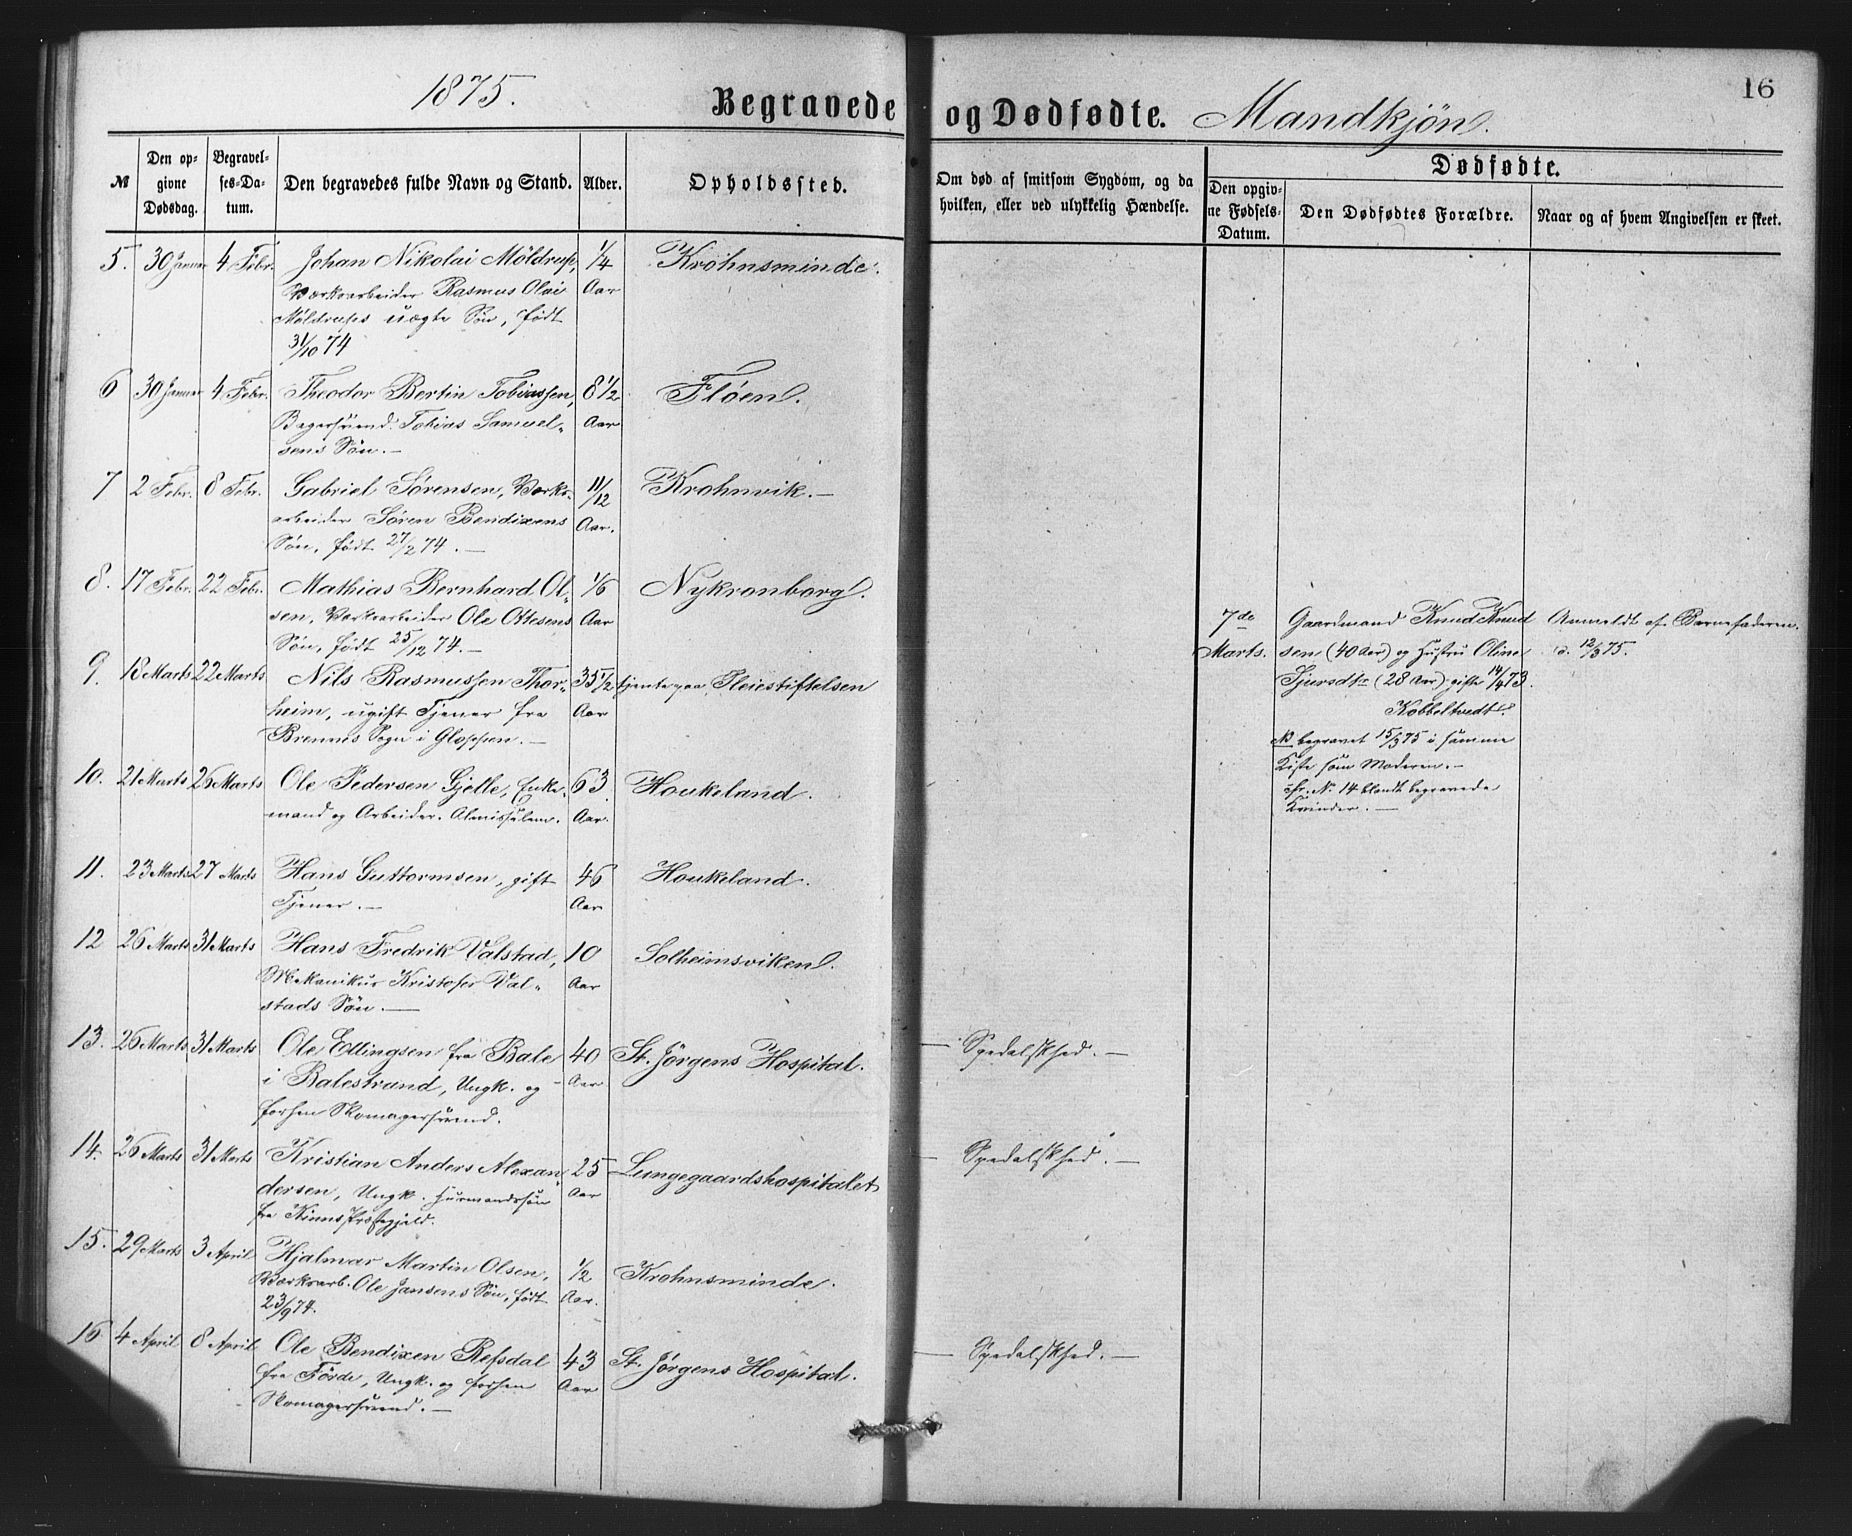 1875.
Begravede og Dødfødte. Mandkjøn.
16
№
Den op-
givne
Dødsdag.
Begravel-
ses-Da-
tum.
Den begravedes fulde Navn og Stand.
Alder.
Opholdssted.
Om død af smitsom Sygdom, og da
hvilken, eller ved ulykkelig Hændelse.
Dødfødte.
Den opgiv-
ne Fødsels-
Datum.
Den Dødfødtes Forældre.
Naar og af hvem Angivelsen er skeet.
5. 30 Januar 4 Febr. Johan Nikolai Möldrup, 1/4 Krohnsminde.
Værksarbeider Rasmus Olai Aar
Möldrups uægte Søn, født
31/10 74
6 30 Januar 4 Febr. Theodor Bertin Tobiassen, 8 1/2 Fløen.
Bagersvend Tobias Samuel- Aar
sens Søn. —
7 2 Febr. 8 Febr. Gabriel Sørensen, Værks- 11/12 Krohnvik. —
arbeider Sören Bendixens Aar.
Søn, født 27/2 74. —
8. 17 Febr. 22 Febr. Mathias Bernhard Ol- 1/6 Nykronborg.
sen, Værksarbeider Ole Ottesens Aar
Søn, født 25/12 74. —
9. 18 Marts 22 Marts Nils Rasmussen Thor- 35 1/2 tjente paa Pleiestiftelsen
heim, ugift Tjener fra Aar
Brennes Sogn i Gloppen. —
10. 21 Marts 26 Marts Ole Pedersen Gjelle, Enke- 63 Houkeland.
mand og Arbeider. Almisselem. Aar.
11. 23 Marts 27 Marts Hans Guttormsen, gift 46 Houkeland.
Tjener. — Aar
12 26 Marts 31 Marts Hans Fredrik Valstad, 10 Solheimsviken.
Mekanikus Kristofer Val- Aar
stads Søn. —
13. 26 Marts 31 Marts Ole Ellingsen fra Bale 40 St. Jørgens Hospital. — Spedalskhed. —
i Balestrand, Ungk. og Aar
forhen Skomagersvend.
14. 26 Marts 31 Marts Kristian Anders Alexan- 25 Lungegaardshospitalet — Spedalskhed. —
dersen, Ungk. Huusmandssøn Aar
fra Kinns Præstegjeld.
15. 29 Marts 3 April Hjalmar Martin Olsen, 1/2 Krohnsminde.
Værksarb. Ole Jansens Søn, født Aar.
23/9 74.
16 4 April 8 April Ole Bendixen Refsdal 43 St. Jørgens Hospital. — Spedalskhed. —
fra Förde, Ungk. og forhen Aar
Skomagersvend. —
7de Gaardmand Knud Knud Anmeldt af Barnefaderen
Marts. sen (40 Aar) og Hustru Oline d. 12/3 75.
Sjursdtr (28 Aar) gifte 14/4 73.
Kobbeltvedt.
NB begravet 15/3 75 i samme
Kiste som Moderen. —
cfr. No 14 blandt begravede
Kvinder. —